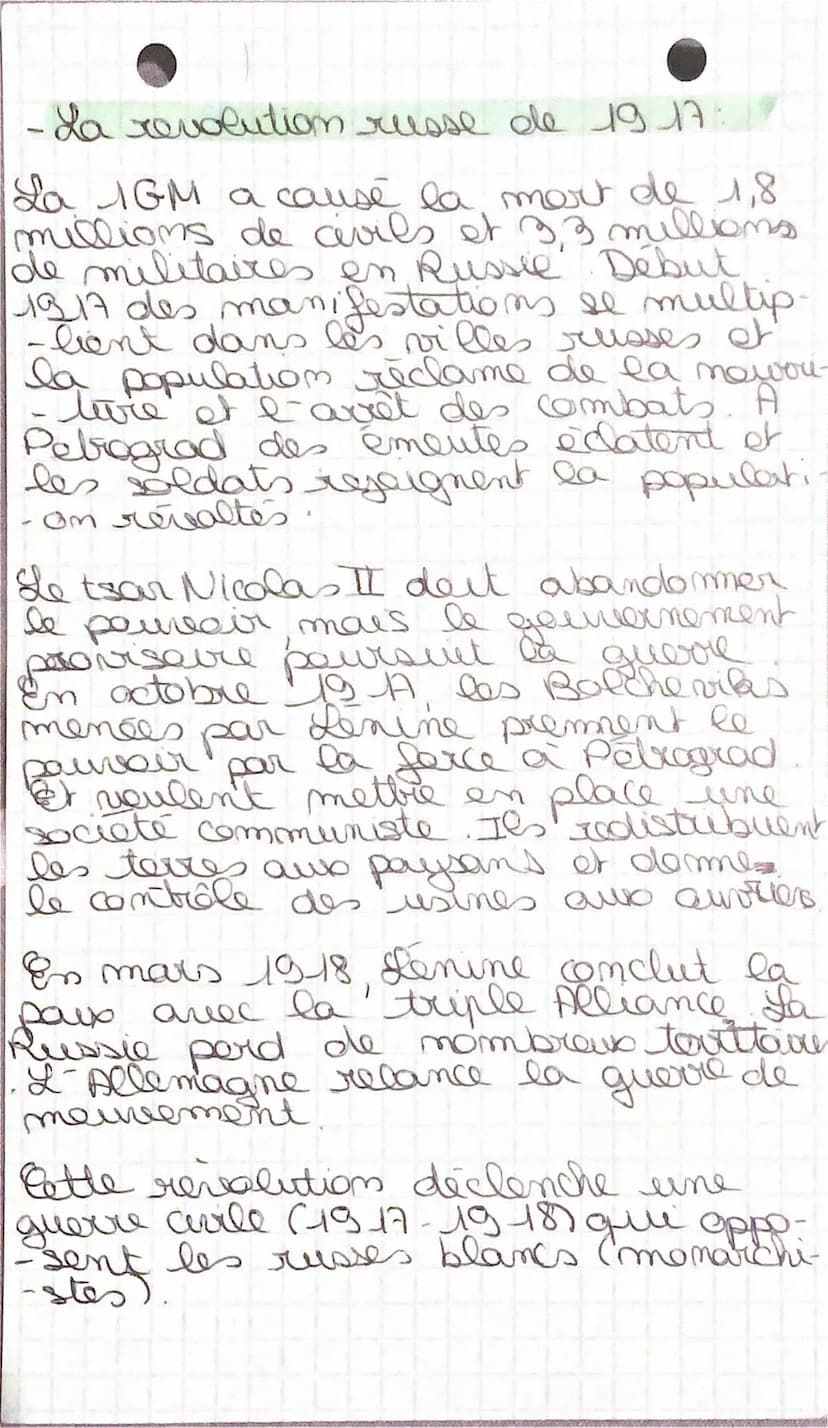 - La revolution russe de 1917:
La 1GM a causé la mort de 1,8
millions de civils et 3,3 millions
de militaires en Russie. Début
1917 des manifestations se multip-
-lient dans les villes russes et
la population réclame de la nourou-
- liure et l'arrêt des combats. A
Petrograd des émeutes éclatent et
les soldats rejoignent la populati-
- on révoltés.
Le tsar Nicolas II doit abandonner
le pouvoir, mais le gouvernement
provisoire poursuit la guerre.
En octobre 1917, les Bolcheviks
menées par Lénine prennent le
pouvoir par la force à Pétrograd.
Et veulent mettre en place une
société communiste. Ils redistribuent
les terres aux paysans et donnes
le contrôle des usines aux ouvriers.
En mars 1918, Lénine conclut la
paix avec la triple Alliance. La
Russie perd de nombreux
. L'Allemagne relance la guerre de
mouvement.
Cette révolution déclenche une
guerre civile (1917-1918) qui oppo-
-sent les russes blancs (monarchi-
-stes).